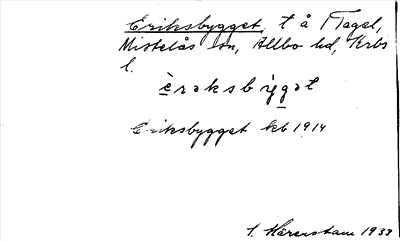 Eriksbygget, t å Flagel,
Mistelås sn, Allbo hd, Krbs
l.
èrəksbỳgət
Eriksbygget kb 1914
1933